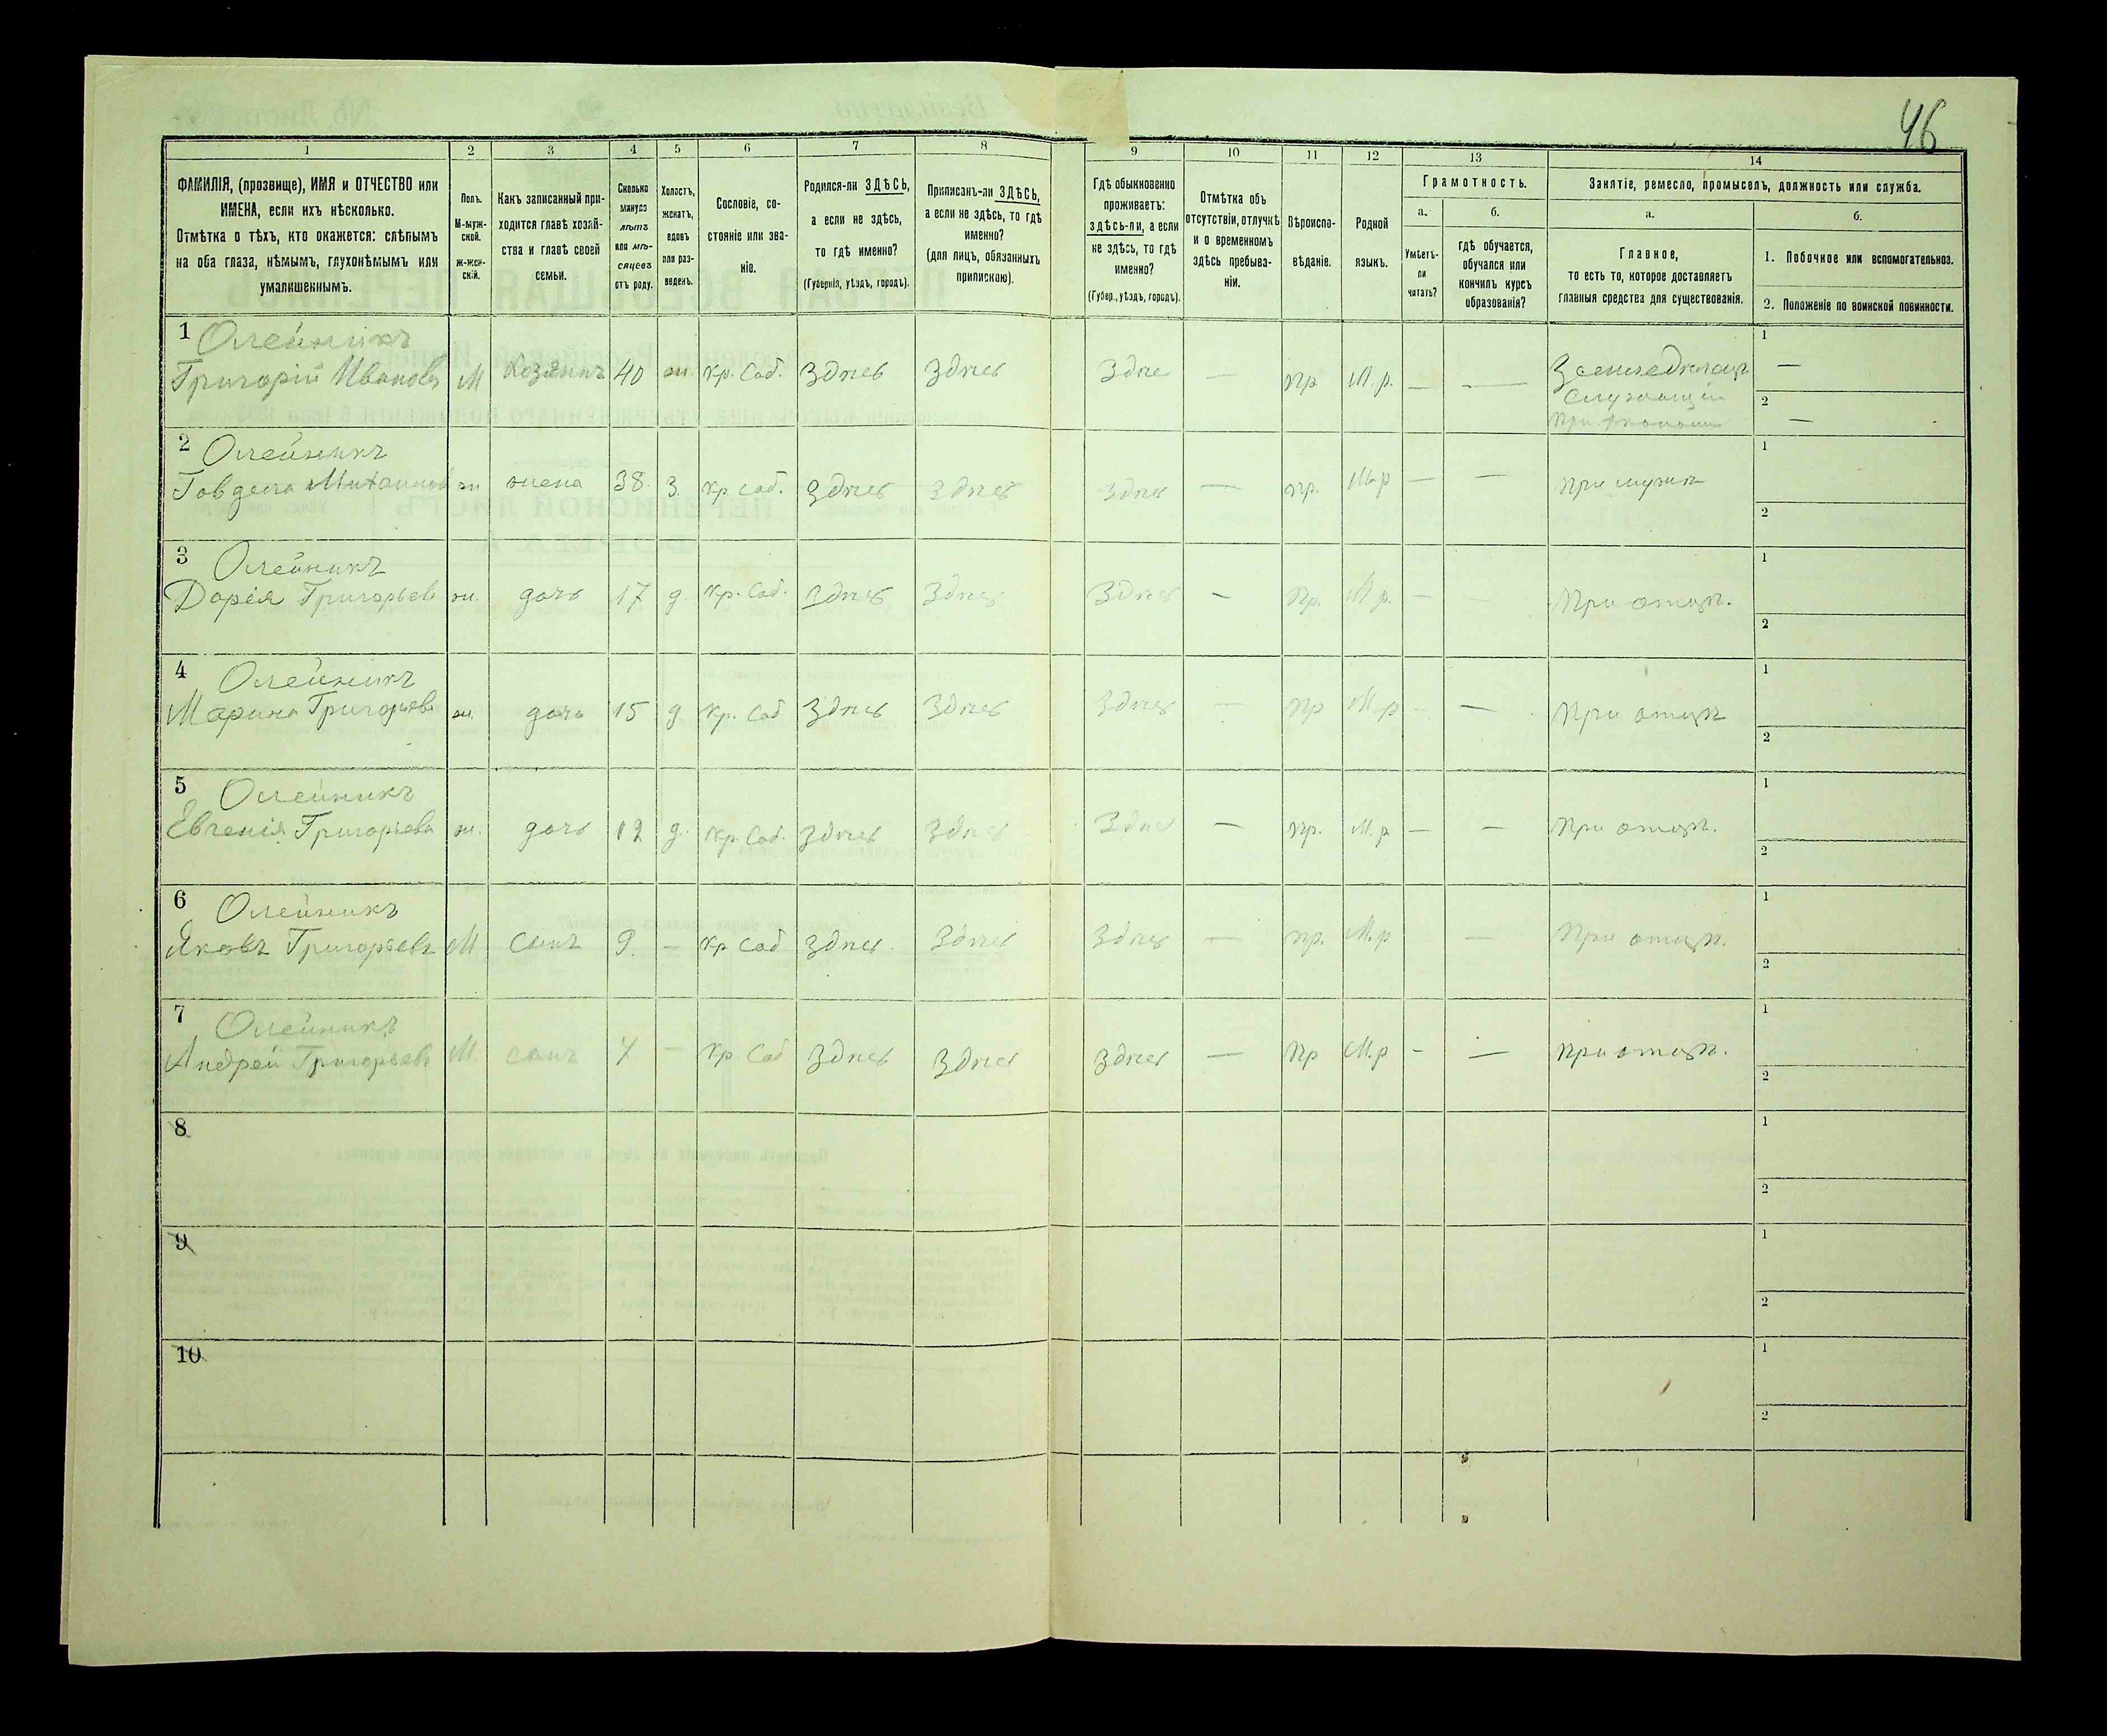 46
1 2 3 4 5 6 7 8 9 10 11 12 13 14
ФАМИЛІЯ, (прозвище), ИМЯ и ОТЧЕСТВО или
ИМЕНА, если ихъ нѣсколько.
Отмѣтка о тѣхъ, кто окажется: слѣпымъ
на оба глаза, нѣмымъ, глухонѣмымъ или
умалишеннымъ.
Полъ.
М-муж-
ской.
ж-жен-
скій.
Какъ записанный при-
ходится главѣ хозяй-
ства и главѣ своей
семьи.
Сколько
минуло
лѣтъ
или мѣ-
сяцевъ
отъ роду.
Холостъ,
женатъ,
вдовъ
или раз-
веденъ.
Сословіе, со-
стояніе или зва-
ніе.
Родился-ли ЗДѢСЬ,
а если не здѣсь,
то гдѣ именно?
(Губернія, уѣздъ, городъ).
Приписанъ-ли ЗДѢСЬ,
а если не здѣсь, то гдѣ
именно?
(для лицъ, обязанныхъ
припискою).
Гдѣ обыкновенно
проживаетъ:
здѣсь-ли, а если
не здѣсь, то гдѣ
именно?
(Губер., уѣздъ, городъ).
Отмѣтка объ
отсутствіи, отлучкѣ
и о временномъ
здѣсь пребыва-
ніи.
Вѣроиспо-
вѣданіе.
Родной
языкъ.
Грамотность.
а. б.
Умѣетъ-
ли
читать?
гдѣ обучается,
обучался или
кончилъ курсъ
образованія?
Занятіе, ремесло, промыселъ, должность или служба.
а. б.
Главное,
то есть то, которое доставляетъ
главныя средства для существованія.
1. Побочное или вспомогательное.
2. Положеніе по воинской повинности.
1 Олейникъ
Григорій Иванов М Хозяинъ 40 ж. кр. Соб. Здѣсь Здѣсь Здѣс — пр М.р. — — 1 —
Служащій 2 —
2 Олейникъ
ж. жена 38. З. кр. соб. Здѣсь Здѣсь Здѣсь — пр. М.р — — при мужѣ 1
2
3 Олейникъ
Дарія Григорьев ж. дочь 17 д. кр. Соб. Здѣсь Здѣсь Здѣсь — пр. М.р. — — При отцѣ. 1
2
4 Олейникъ
Марина Григорьева ж. дочь 15 д кр. Соб Здѣсь Здѣсь Здѣсь — пр М.р — — При отцѣ 1
2
5 Олейникъ
Евгенія Григорьева ж. дочь 12 д. кр. Соб. Здѣсь Здѣсь Здѣсь — пр. М.р — — При отцѣ. 1
2
6 Олейникъ
Яковъ Григорьевъ М. сынъ 9. — кр Соб Здѣсь Здѣсь Здѣсь — пр. М.р — При отцѣ. 1
2
7 Олейникъ
Андрей Григорьевъ М. сынъ 4 — кр. Соб Здѣсь Здѣсь Здѣсь — пр М.р — — при отцѣ. 1
2
8 1
2
9 1
2
10 1
2